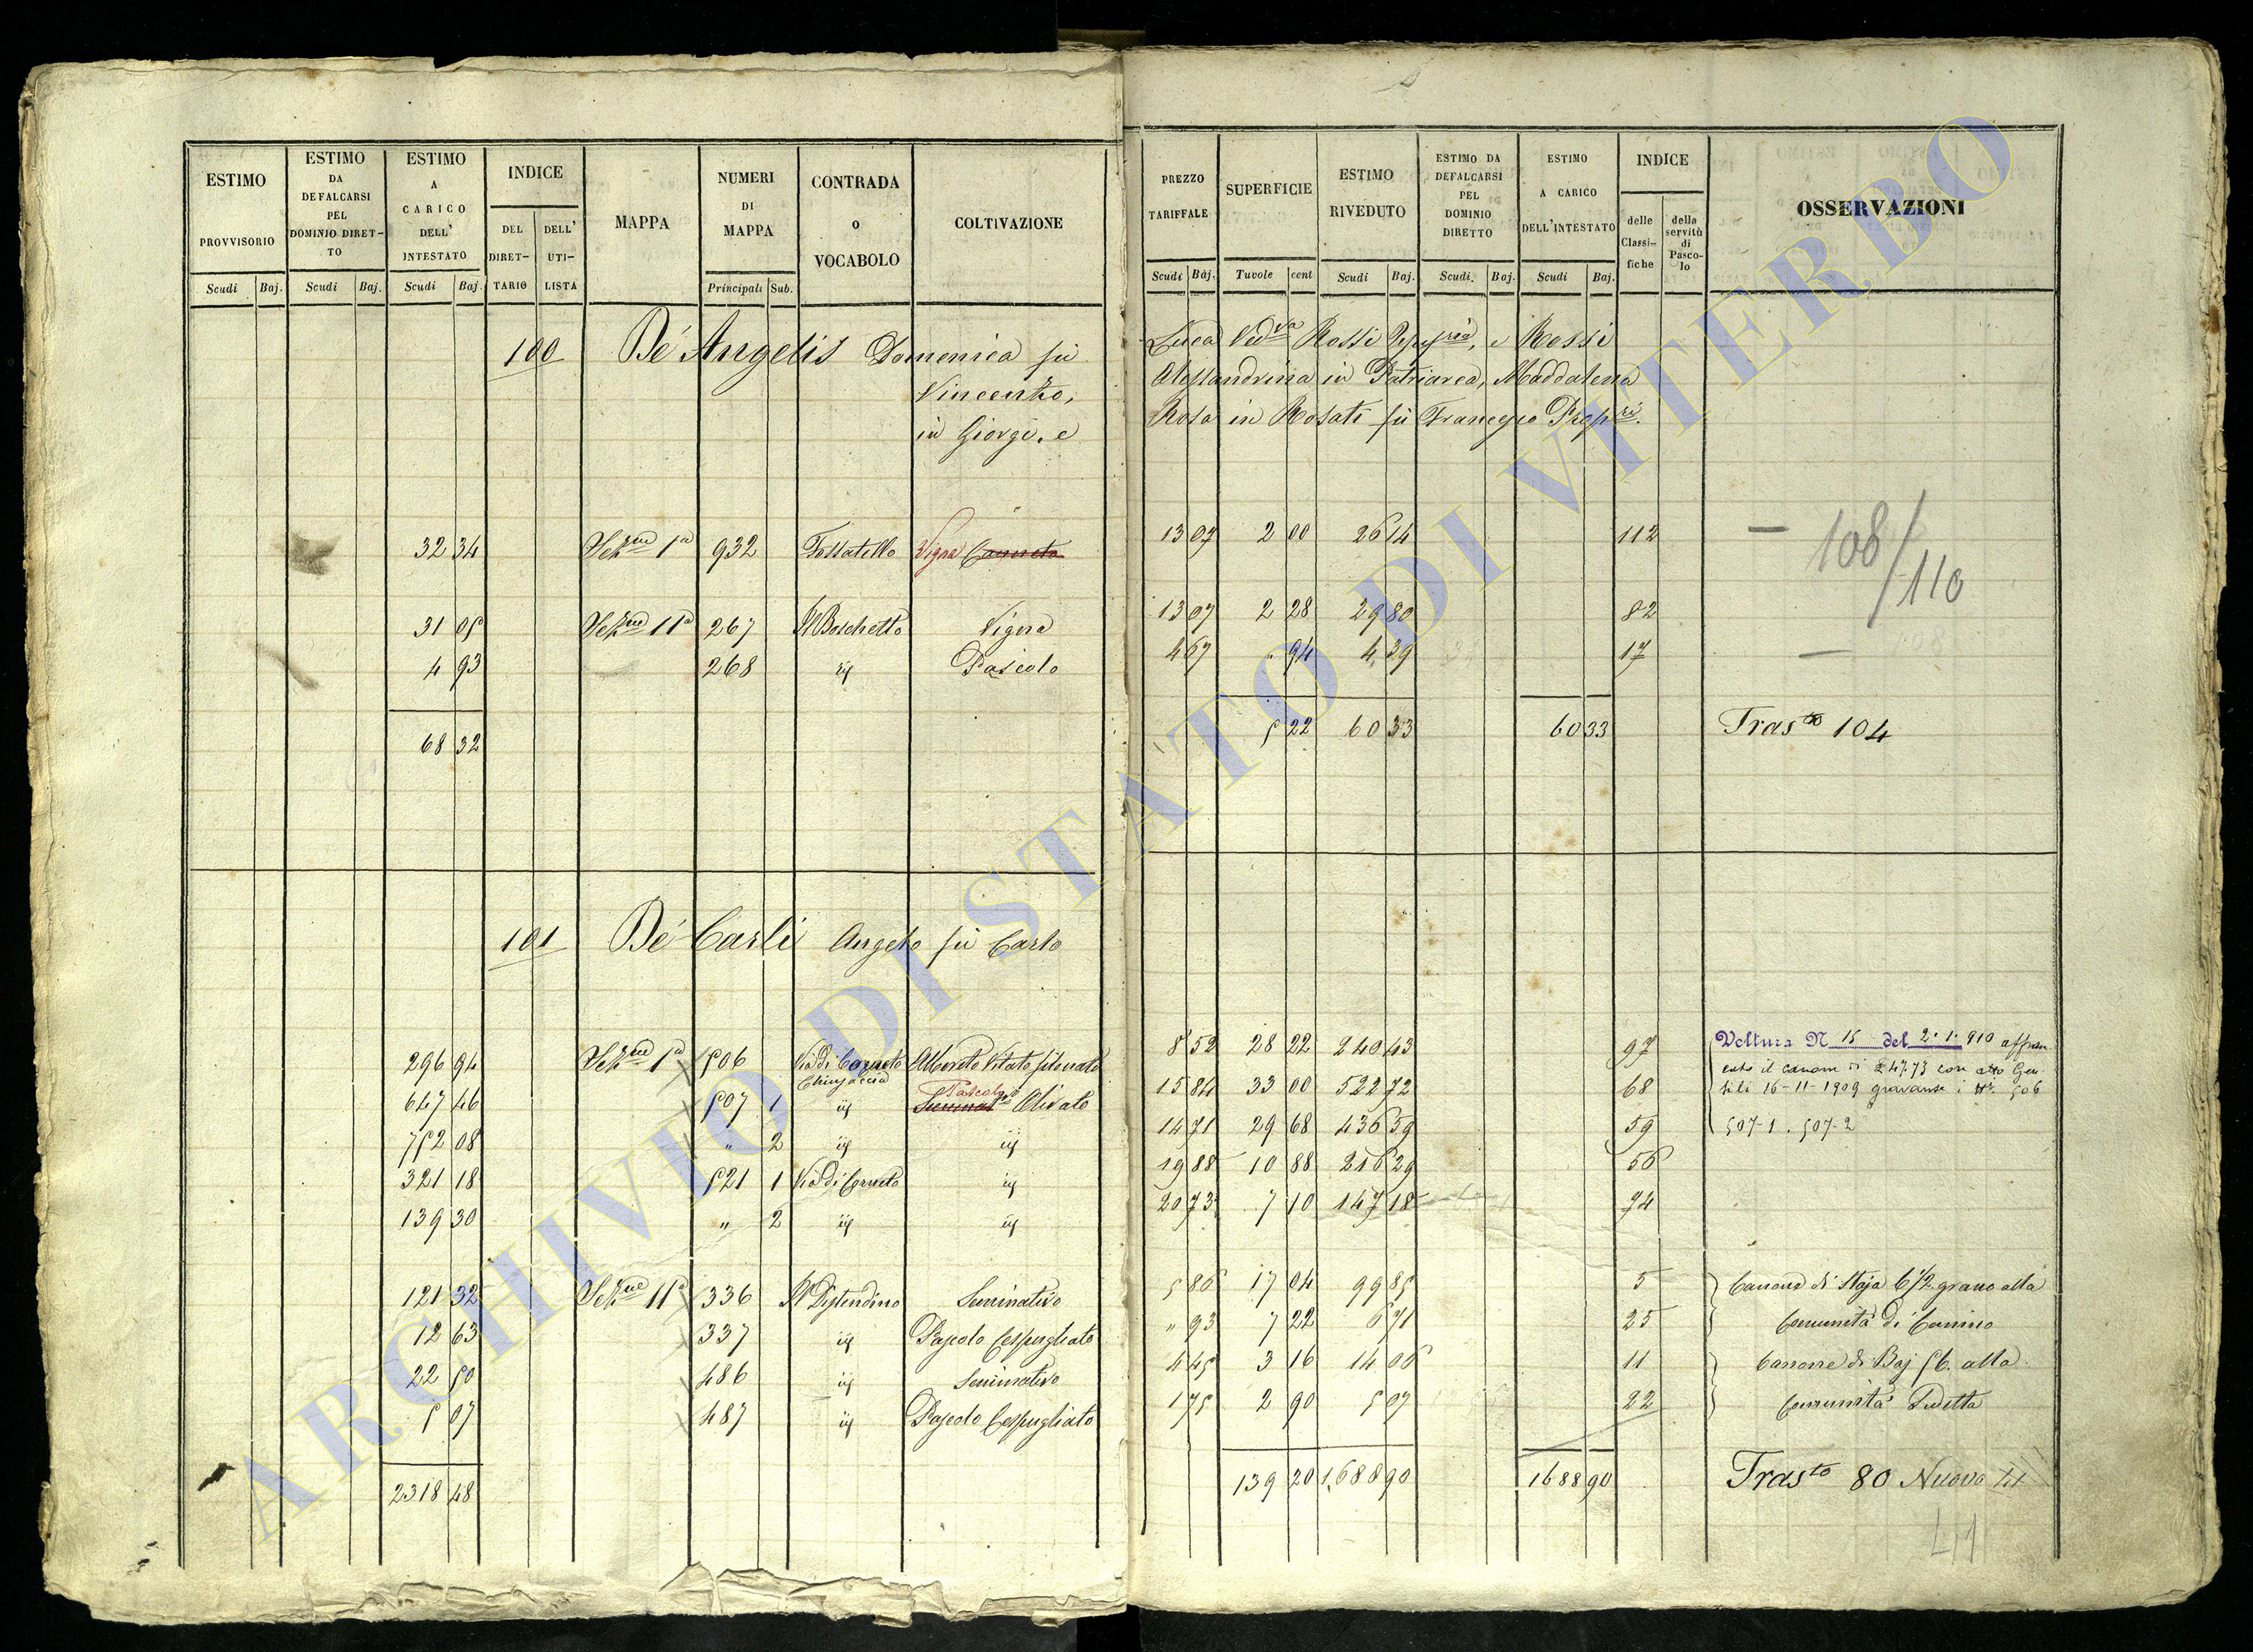 ESTIMO PROVVISORIO
ESTIMO DA DEFALCARSI PEL DOMINIO DIRET- TO
ESTIMO A CARICO DELL' INTESTATO
INDICE
DEL DIRET- TARIO
DELL' UTI- LISTA
MAPPA
NUMERI DI MAPPA
CONTRADA o VOCABOLO
COLTIVAZIONE
Scudi Baj. Scudi Baj. Scudi Baj. Principali Sub.
PREZZO TARIFFALE
SUPERFICIE
ESTIMO RIVEDUTO
ESTIMO DA DEFALCARSI PEL DOMINIO DIRETTO
ESTIMO A CARICO DELL'INTESTATO
INDICE
delle Classi- fiche
della servitù di Pasco- lo
OSSERVAZIONI
Scudi Baj. Tavole cent Scudi Baj. Scudi. Baj. Scudi Baj.
100 De Angelis Domenica fù
Vincenzo,
in Giorgi, e
Luca Ved.va Rossi e Rossi
Alessandrina in Patriarca, Maddalena
Rosa in Rosati fù Francesco Propri.
32 34 Sez.ne 1a 932 Fossatello Vigna Canneto 13 07 2 00 26 14 112 —
108/110
31 05 Sez.ne 11a 267 Il Boschetto Vigna 13 07 2 28 29 80 82
4 93 268 id Pascolo 4 67 " 94 4 39 17 —
68 32 5 22 60 33 60 33 Tras.to 104
101 De Carli Angelo fù Carlo
296 94 Sez.ne 1a 506 Via di Corneto Alborato Vitato 8 52 28 22 240 43 97
647 46 507 1 id Pascolo Olivato 15 84 33 00 522 72 68
752 08 " 2 id id 14 71 29 68 436 59 59
321 18 521 1 Via di Corneto id 19 88 10 88 216 29 56
139 30 " 2 id id 20 73 7 10 147 18 74
Voltura N 15 del 2.1.910 affran
cato il canone di £ 47.73 con atto Gen
tili 16-11-1909 gravante i Nr. 506
507-1. 507-2
121 32 Sez.ne 11a 336 Seminativo 5 86 17 04 99 85 5 Canone di Staja 6 1/2 grano alla
12 63 337 id Pascolo Cespugliato " 93 7 22 6 71 25 Comunità di Canino
22 50 486 id Seminativo 4 45 3 16 14 06 11 Canone di Baj 56. alla
5 07 487 id Pascolo Cespugliato 1 75 2 90 5 07 22 Comunità Sudetta
2318 48 139 20 1,688 90 1688 90 Tras.to 80 Nuovo 41
41
ARCHIVIO DI STATO DI VITERBO